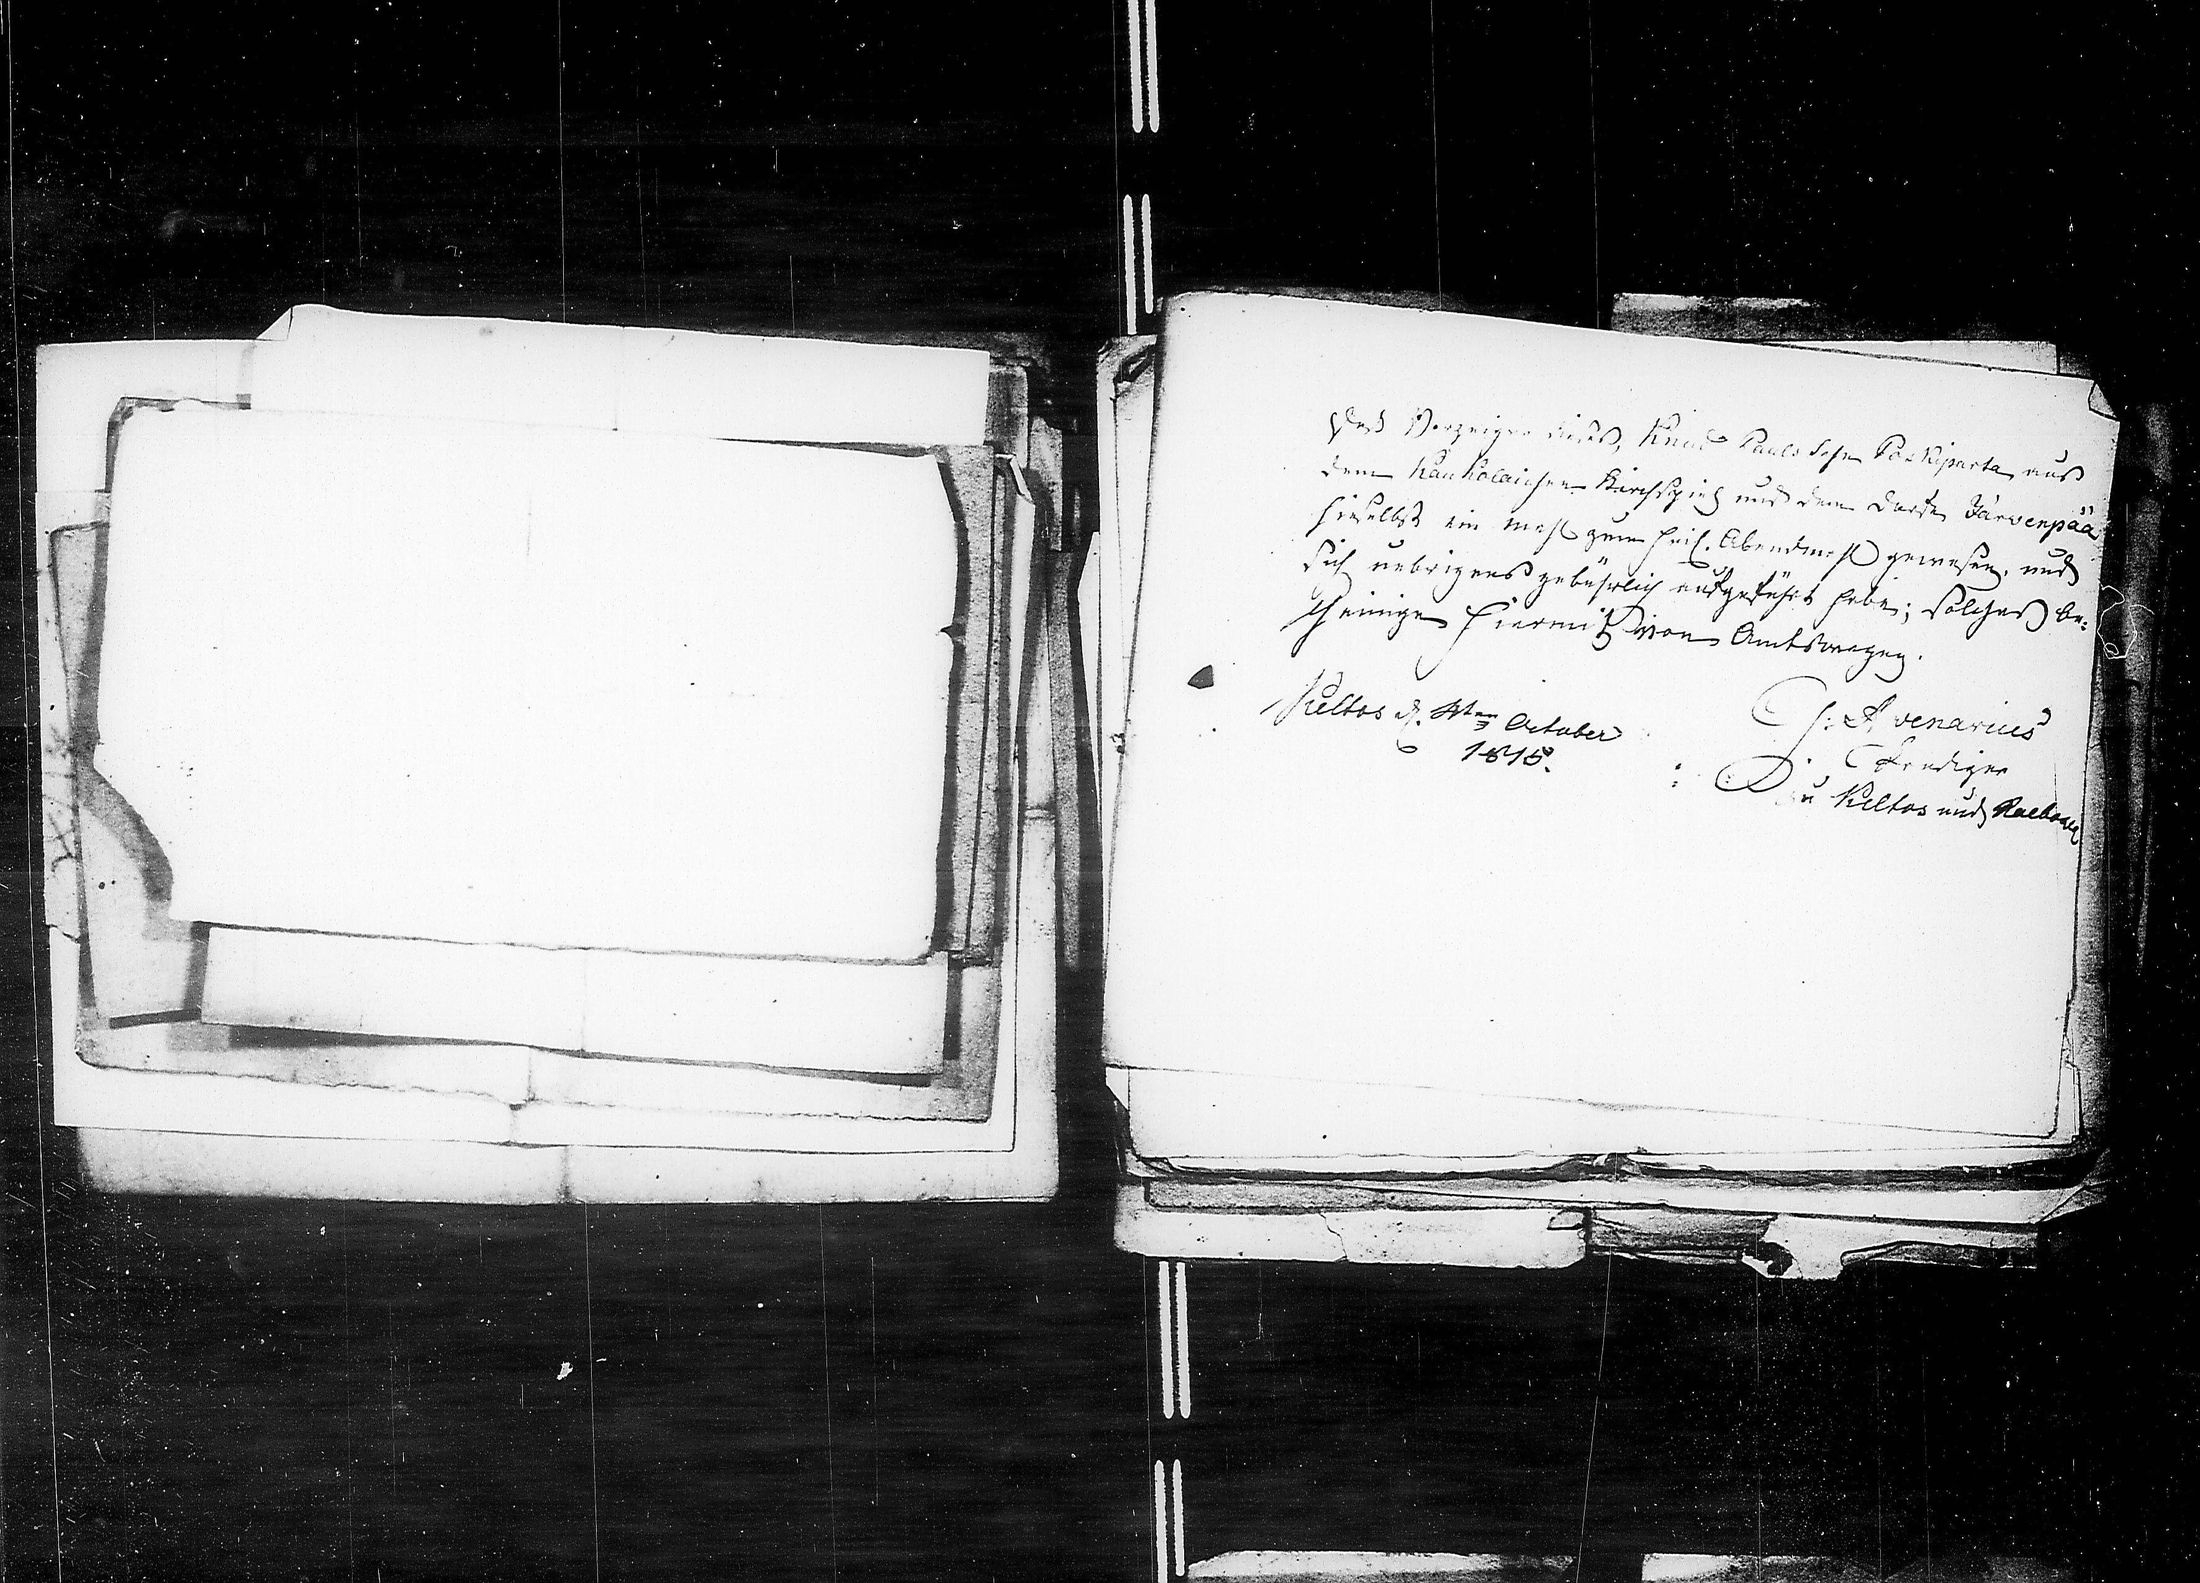 Daß Vorzeiger dieses, Knud Pauls Sohn Parkiparta aus
dem Kaukolaischen Kirchspiel und dem Dorfe Järwenpää
hieselbst ein mahl zum heil. Abendmahl gewesen, und
sich uebrigens gebührlich aufgeführt habe; solches be-
scheinige hiermit von Amtswegen.
Keltos d. October
1815.
C. Avenarius
Prediger
zu Keltos und